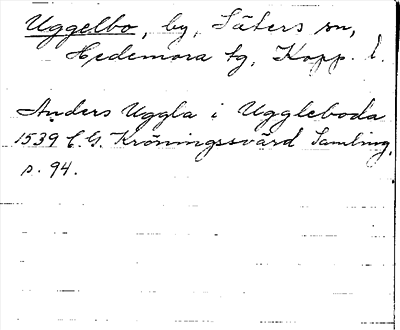 Uggelbo, by, Säters sn,
Hedemora tg, Kopp. l.
Anders Uggla i Uggleboda
1539 C.G. Kröningssvärd Samling,
s. 94.